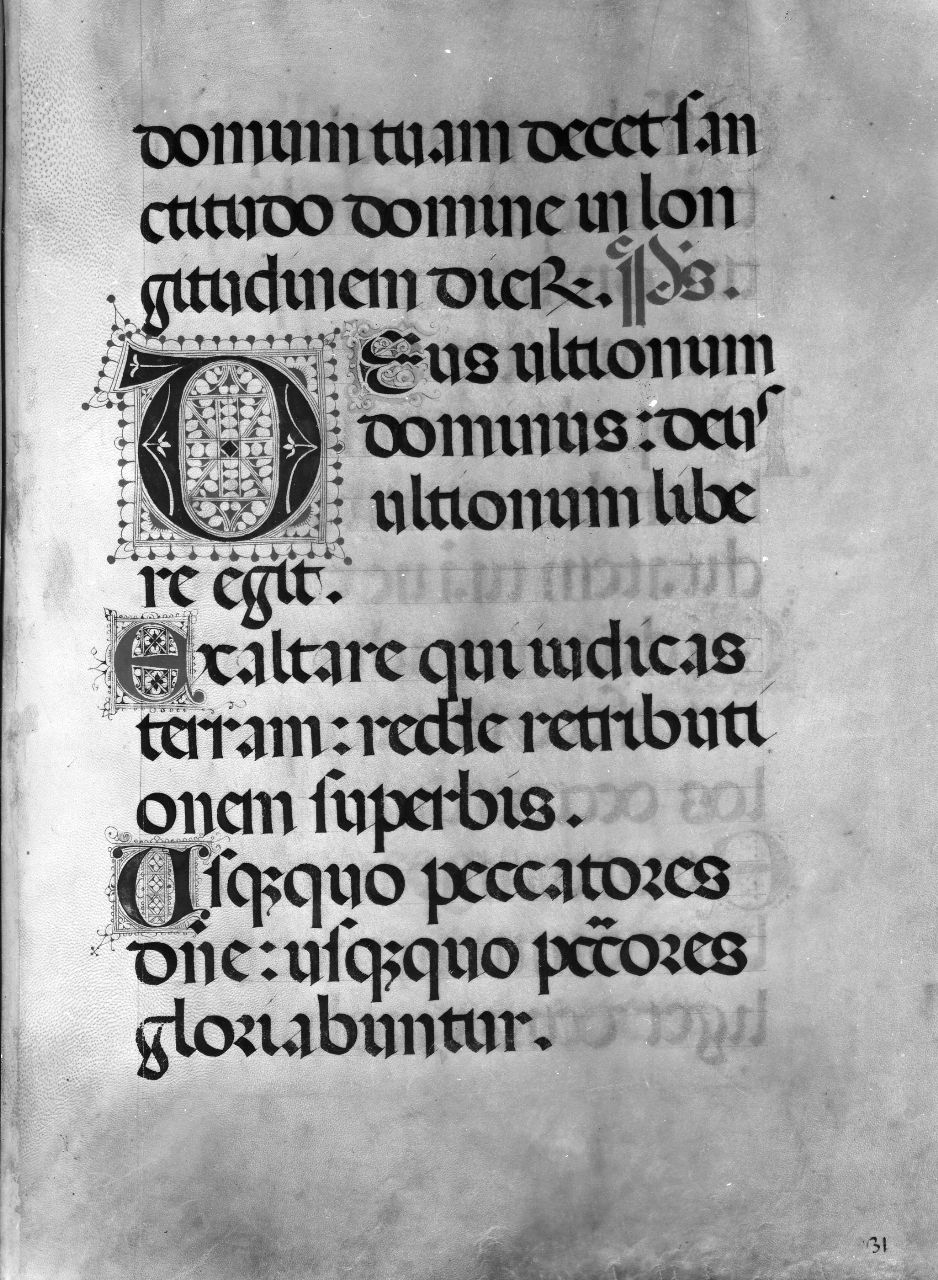 domum tuam decet ſan
ctitudo domine in lon
gitudinem dieꝝ. p̄s.
DEus ultionum
dominus : deuſ
ultionum libe
re egit.
Exaltare qui iudicas
terram : redde retributi
onem ſuperbis.
Uſqꝫquo peccatoꝛes
dn̄e : uſqꝫquo pcc̄oꝛes
gloꝛiabuntur.
31